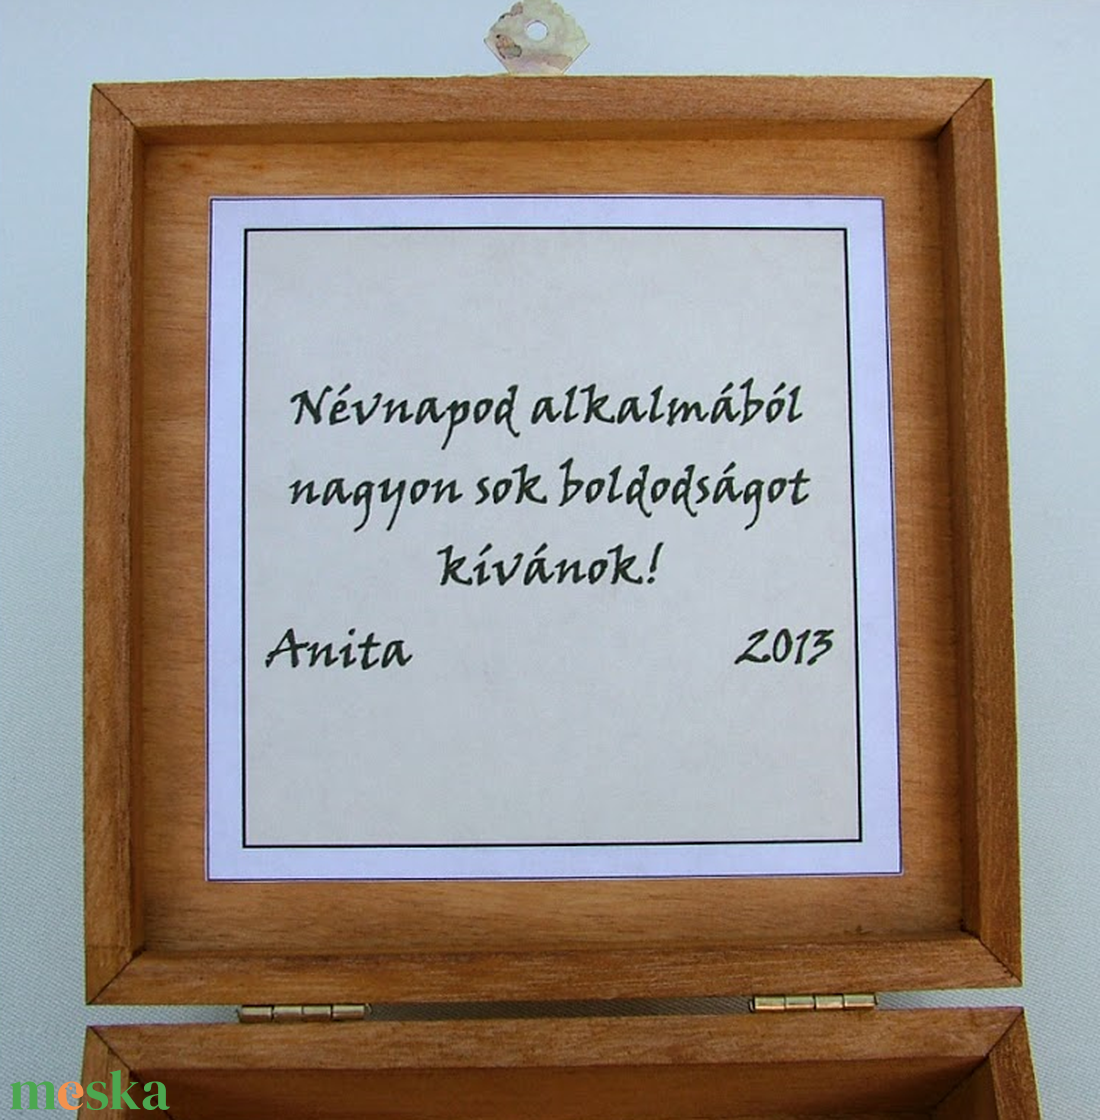 Névnapod alkalmából
nagyon sok boldodságot
kívánok!
Anita 2013
meska